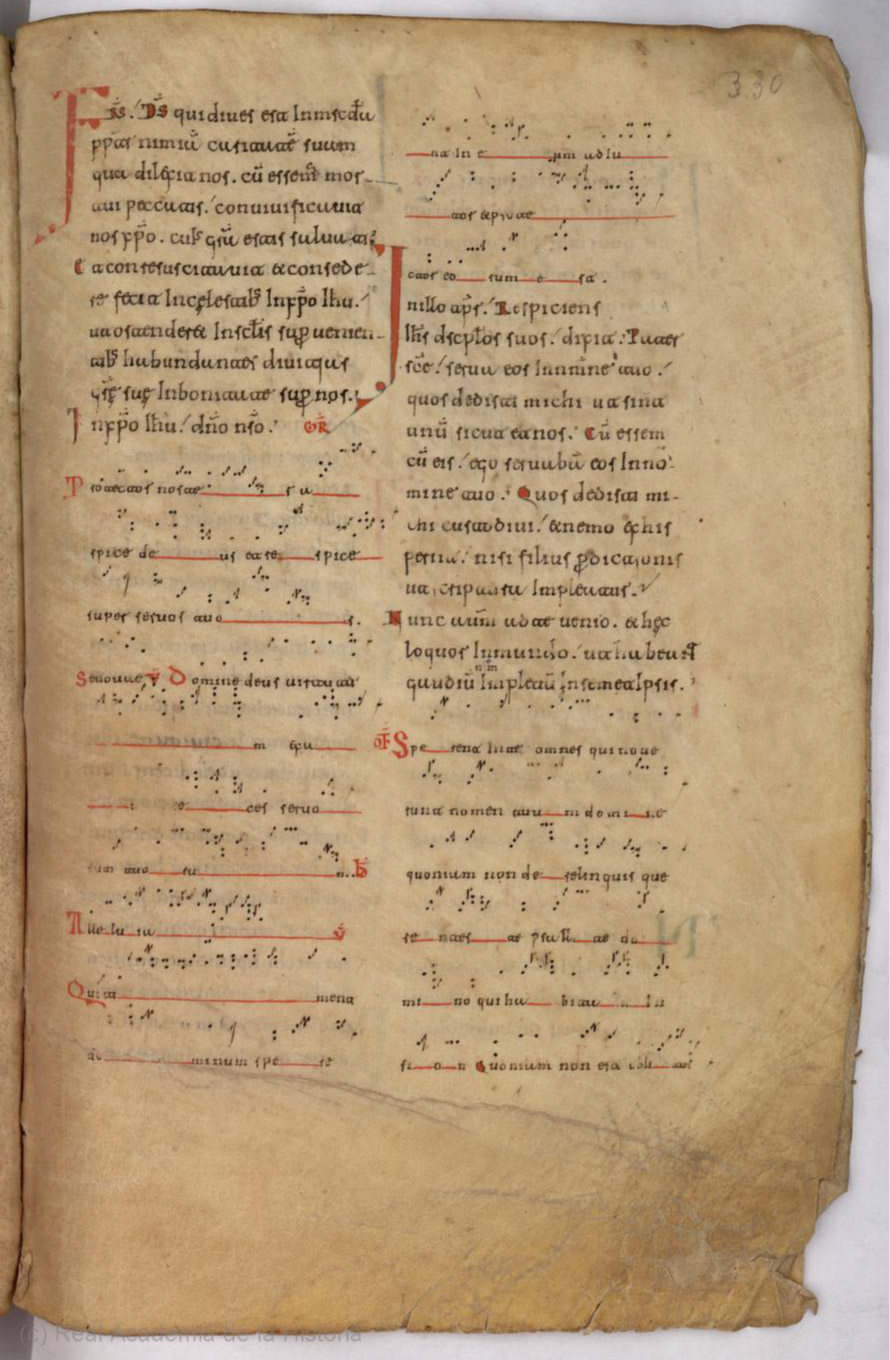 330
Frs. Ds qui dives est In misc̄dia
pp̄t nimiu caritatē suam
qua dilexit nos. cū essem̄ mor-
tui peccatis. convivificavit
nos xp̄o. cuius grā estis salvati
Et conresuscitavit & consede-
re fecit In celestib; In xp̄o Ihu.
ut ostenderet In sclis sup̄ venien-
tib; habundantes divitias
grē suę In bonitate sup̄ nos.
In xp̄o Ihu dn̄o nr̄o. GR̄
Protector noster a
spice de us et re spice
super servos tuo s.
V Domine deus virtutū
m exau
ces servo
rum tuo ru
Alle lu ia V
Qui ti ment
do minum spe re
na In e um ad iu
tor & prote
ctor eo rum e st.
In illo tp̄r. Respiciens
Ihs dscplos suos. dixit. Pater
sce serva eos In nomine tuo.
quos dedisti michi ut sint
unū sicut et nos. Cū essem
cū eis. ego servabā eos In no-
mine tuo. Quos dedisti mi-
chi custodivi. & nemo ex his
periit. nisi filius p̄dicionis
ut scriptura Impleatur.
Nunc autm̄ ad te venio. & hęc
loquor In mundo. ut habeant
gaudiū Impleatū In semetipsis.
OF Spe rent In te omnes qui nove
runt nomen tuu m domi ne
quoniam non de relinquis que
re ntes te psall te do
mi no qui ha bitat In
si o n Quoniam non est obli tus
(c) Real Academia de la Historia